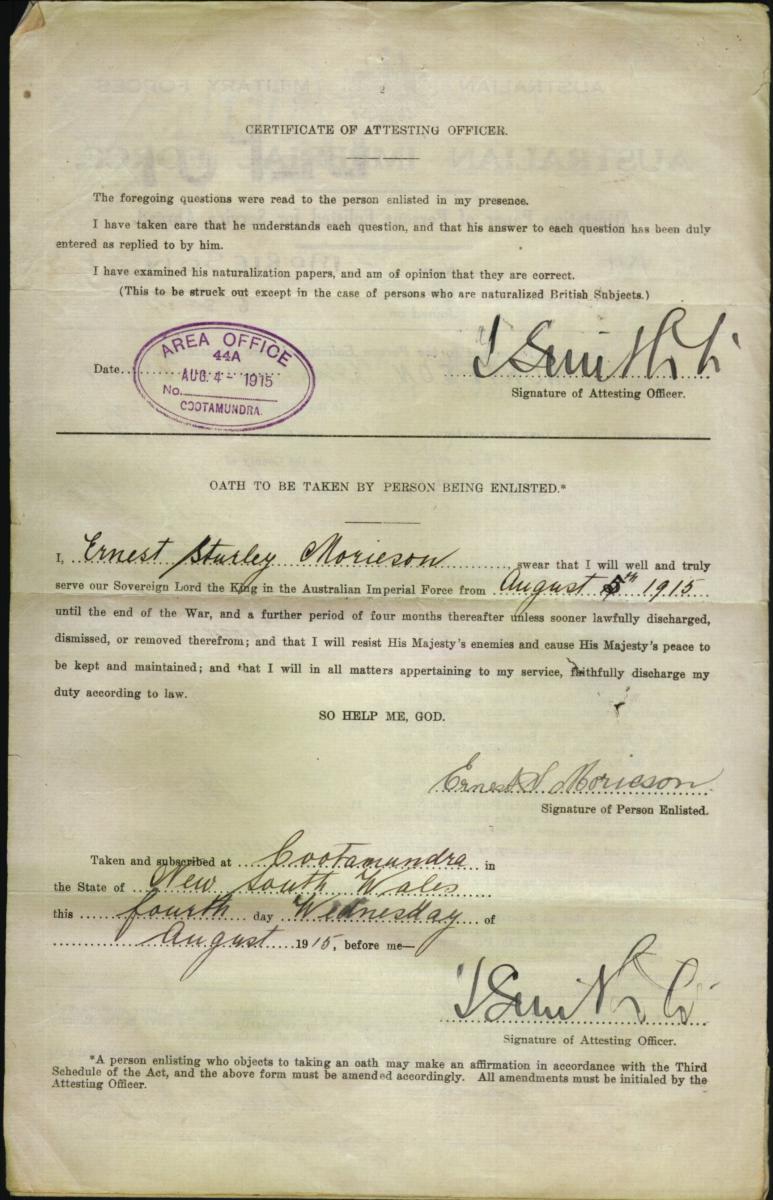 2
CERTIFICATE OF ATTESTING OFFICER.
The foregoing questions were read to the person enlisted in my presence.
I have taken care that he understands each question, and that his answer to each question has been duly
entered as replied to by him.
I have examined his naturalization papers, and am of opinion that they are correct.
(This to be struck out except in the case of persons who are naturalized British Subjects.)
AREA OFFICE
44A
Date AUG. 4 - 1915
No.
COOTAMUNDRA.
Smith
Signature of Attesting Officer.
OATH TO BE TAKEN BY PERSON BEING ENLISTED.*
I, Ernest Sturley Morieson swear that I will well and truly
serve our Sovereign Lord the King in the Australian Imperial Force from August 5th 1915
until the end of the War, and a further period of four months thereafter unless sooner lawfully discharged,
dismissed, or removed therefrom; and that I will resist His Majesty's enemies and cause His Majesty's peace to
be kept and maintained; and that I will in all matters appertaining to my service, faithfully discharge my
duty according to law.
SO HELP ME, GOD.
Ernest S Morieson
Signature of Person Enlisted.
Taken and subscribed at Cootamundra in
the State of New South Wales
this fourth day Wednesday of
August 1915, before me—
Smith
Signature of Attesting Officer.
*A person enlisting who objects to taking an oath may make an affirmation in accordance with the Third
Schedule of the Act, and the above form must be amended accordingly. All amendments must be initialed by the
Attesting Officer.